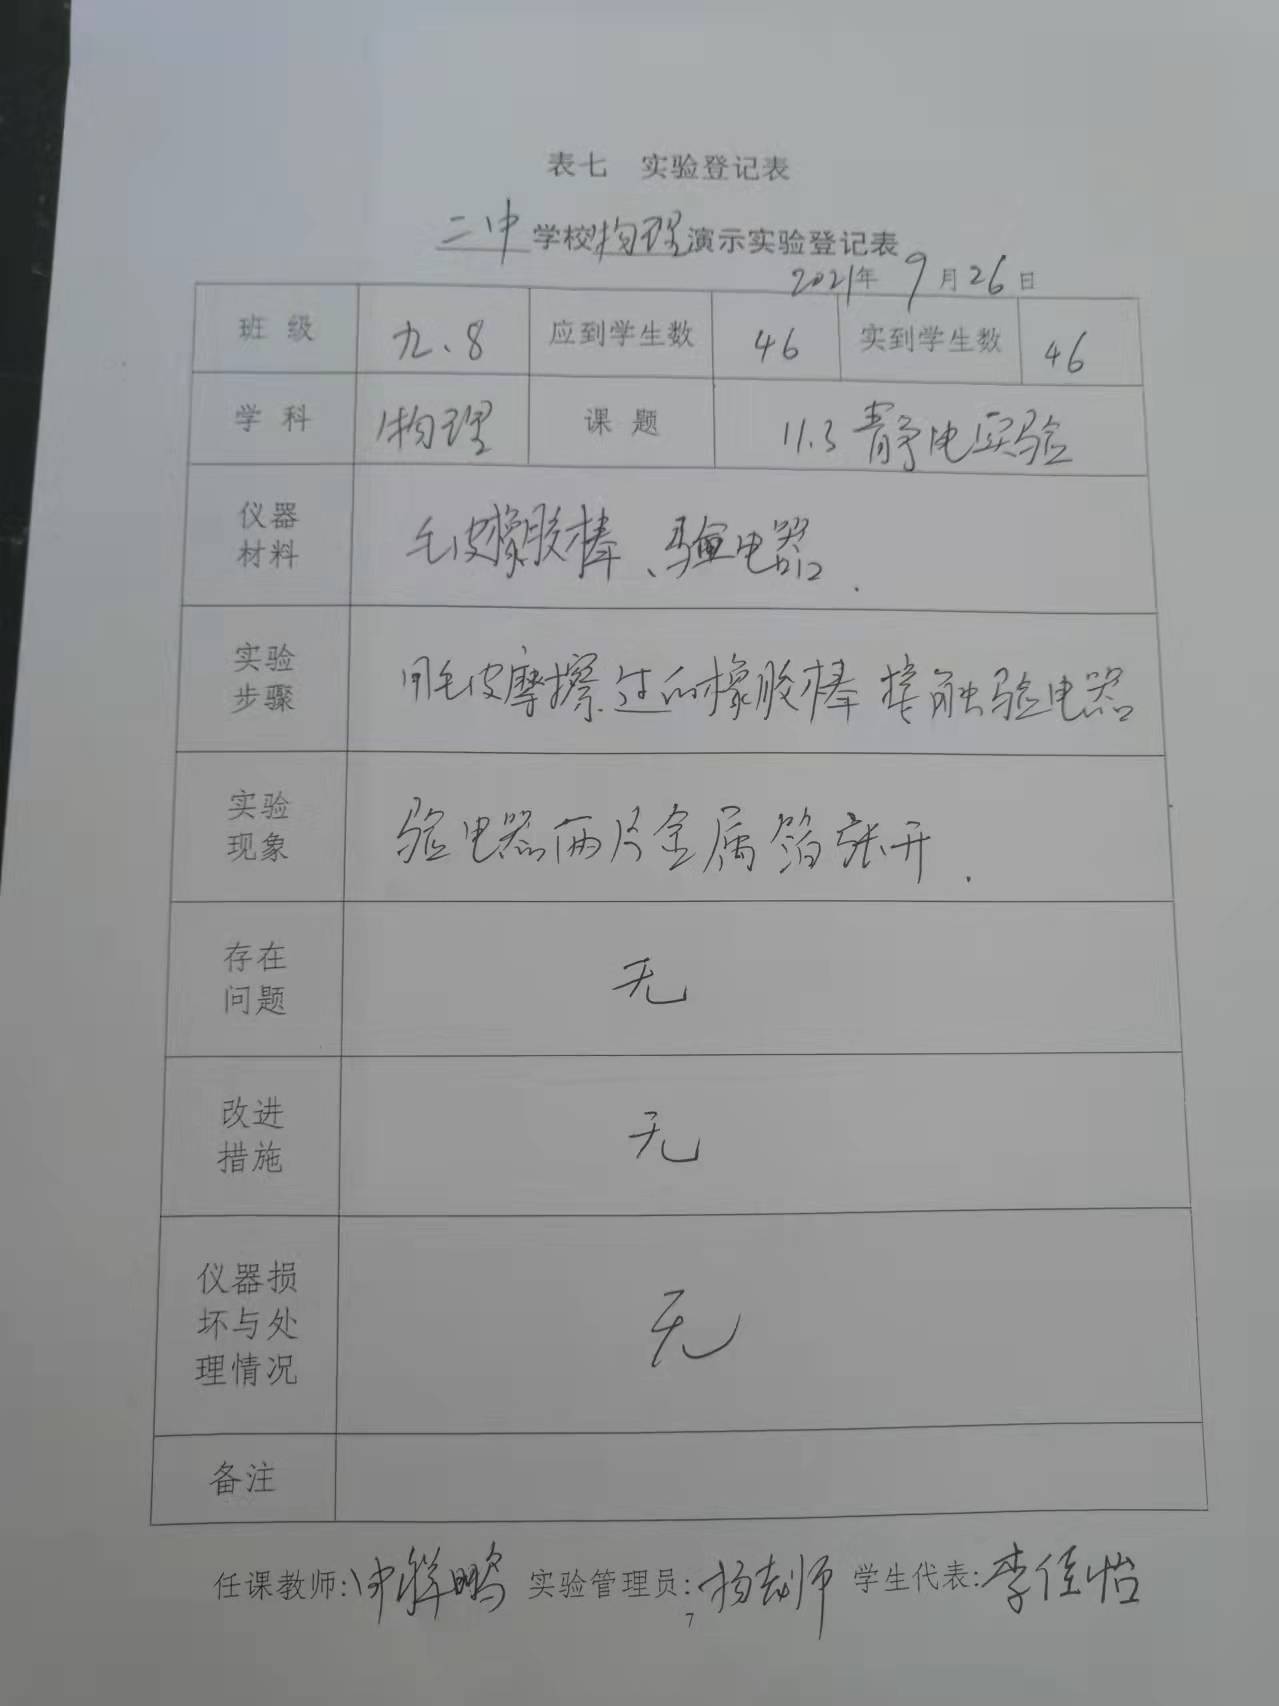 表七 实验登记表
二中学校物理演示实验登记表
2021年9月26日
班级 九、8 应到学生数 46 实到学生数 46
学科 物理 课题 11.3 静电实验
仪器
材料
毛皮橡胶棒、验电器.
实验
步骤
用毛皮摩擦过的橡胶棒接触验电器
实验
现象
验电器两片金属箔张开.
存在
问题
无
改进
措施
无
仪器损
坏与处
理情况
无
备注
任课教师: 实验管理员:杨老师 学生代表:李佳怡
7